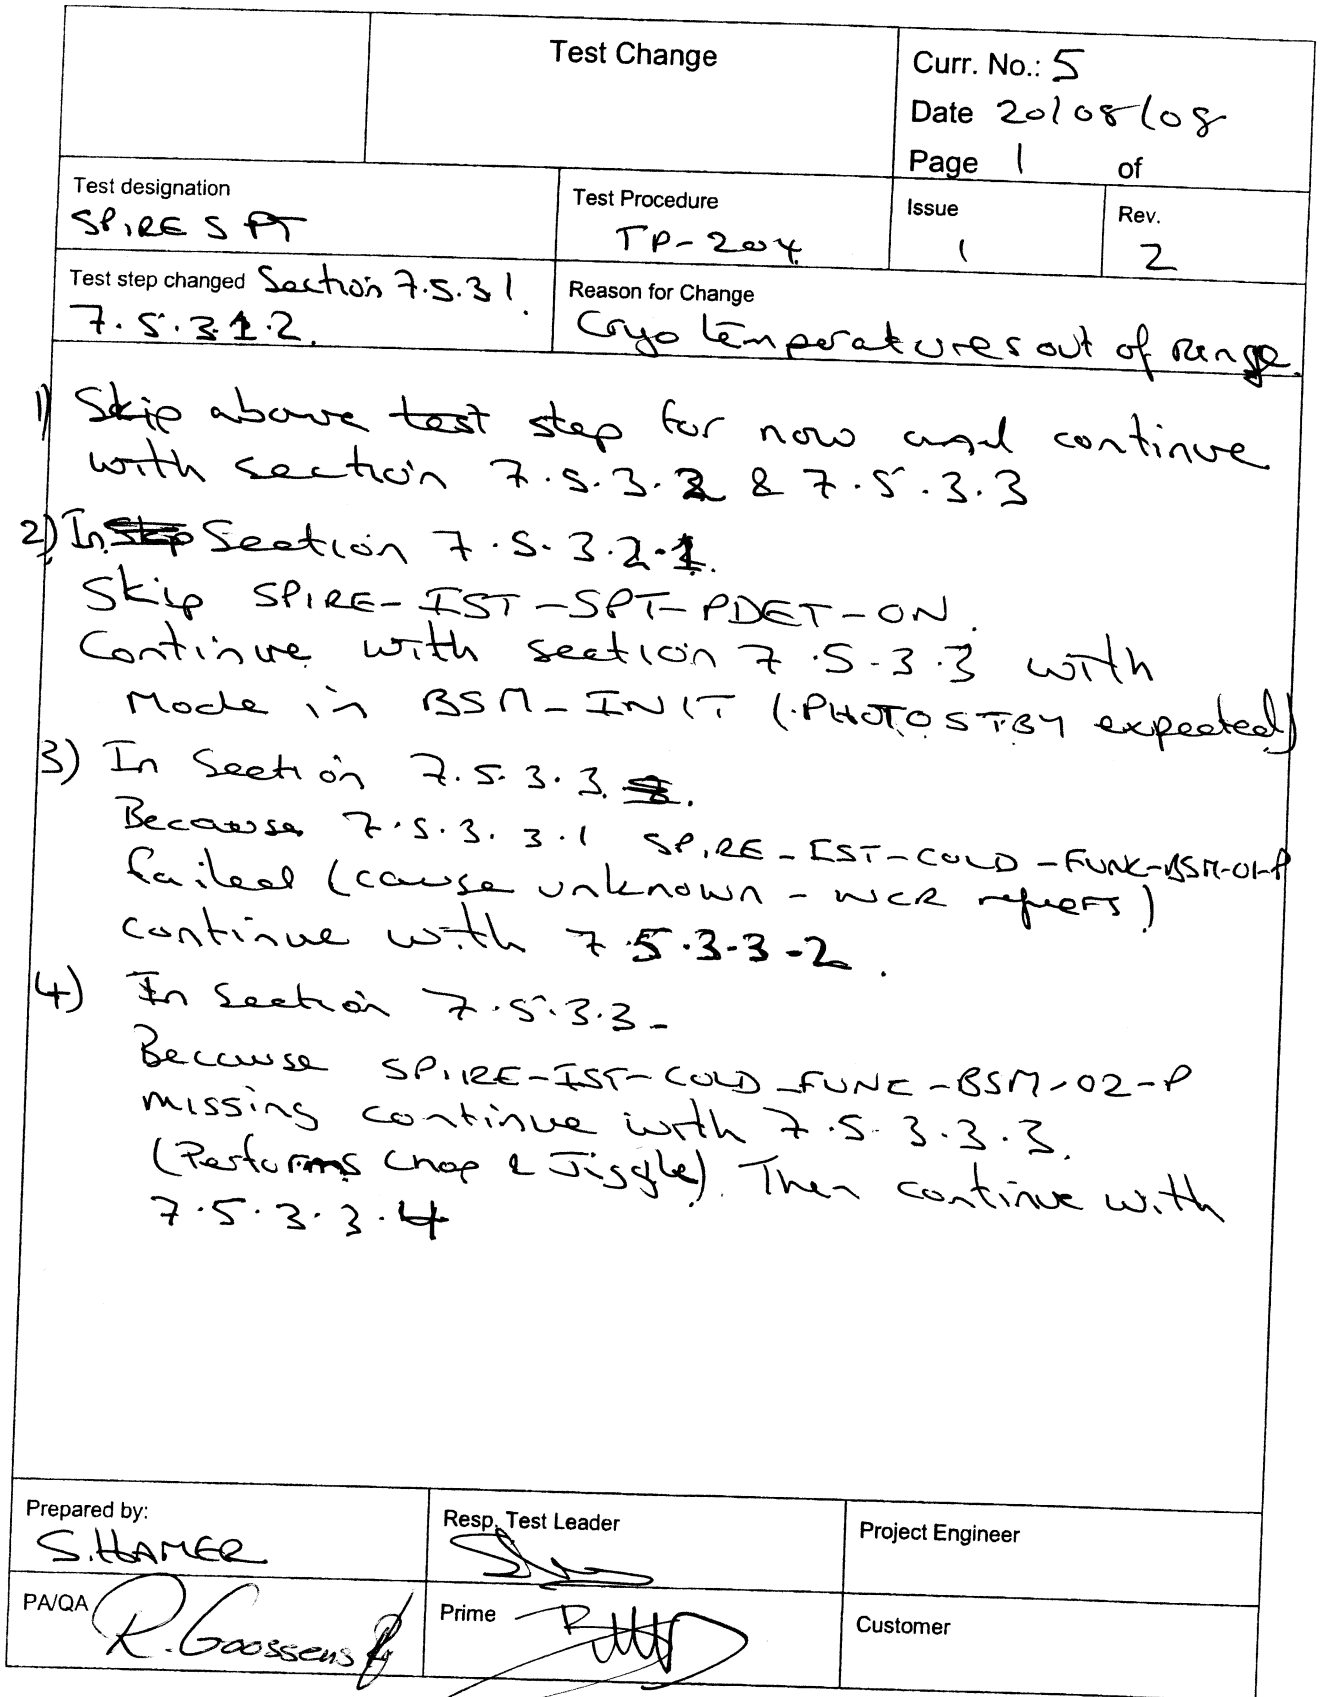 Test Change
Curr. No.: 5
Date 20/08/08
Page 1 of
Test designation
SPIRE SPT
Test Procedure
TP-204
Issue
1
Rev.
2
Test step changed Section 7.5.3.1.
7.5.3.1.2.
Reason for Change
Cryo temperatures out of range.
1) Skip above test step for now and continue
with section 7.5.3.2 & 7.5.3.3
2) In Section 7.5.3.2.1.
Skip SPIRE-IST-SPT-PDET-ON.
Continue with section 7.5.3.3 with
Mode in BSM-INIT (PHOTOSTBY expected)
3) In Section 7.5.3.3.
Because 7.5.3.3.1 SPIRE-IST-COLD-FUNC-BSM-01-P
failed (cause unknown - NCR
continue with 7.5.3.3.2.
4) In Section 7.5.3.3-
Because SPIRE-IST-COLD_FUNC-BSM-02-P
missing continue with 7.5.3.3.3.
(Performs Chop & Jiggle). Then continue with
7.5.3.3.4
Prepared by:
S.HAMER
Resp. Test Leader
Project Engineer
PA/QA
R.Goossens
Prime
Customer